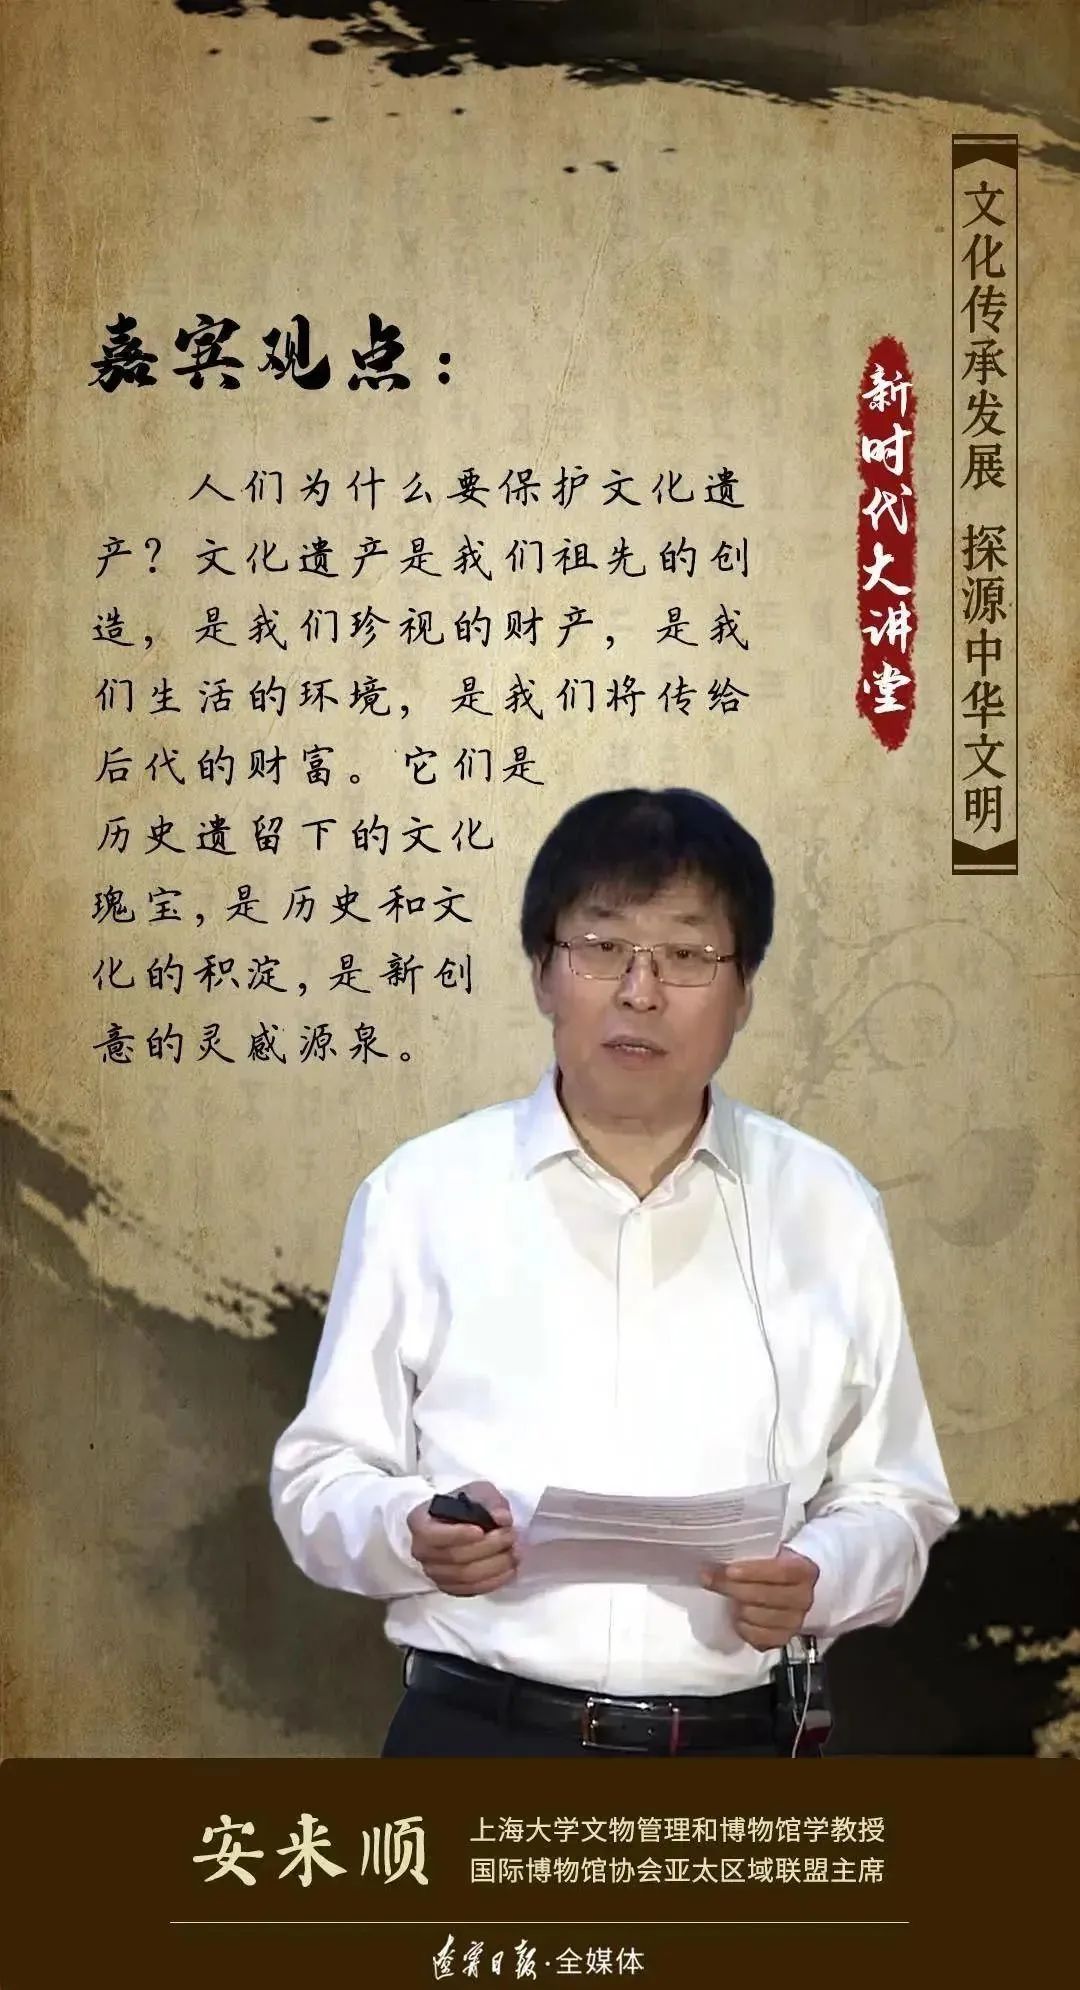 《文化传承发展 探源中华文明》
新时代大讲堂
嘉宾观点：
人们为什么要保护文化遗
产？文化遗产是我们祖先的创
造，是我们珍视的财产，是我
们生活的环境，是我们将传给
后代的财富。它们是
历史遗留下的文化
瑰宝，是历史和文
化的积淀，是新创
意的灵感源泉。
安来顺
上海大学文物管理和博物馆学教授
国际博物馆协会亚太区域联盟主席
辽宁日报·全媒体